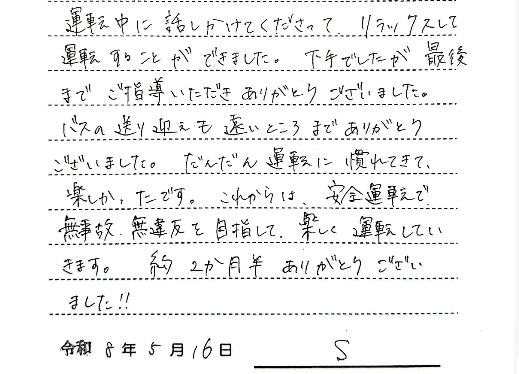 運転中に話しかけてくださって、リラックスして
運転することができました。下手でしたが最後
までご指導いただきありがとうございました。
バスの送り迎えも遠いところまでありがとう
ございました。だんだん運転に慣れてきて、
楽しかったです。これからは、安全運転で
無事故、無違反を目指して、楽しく運転してい
きます。約2か月半ありがとうござい
ました!!
令和8年5月16日 S